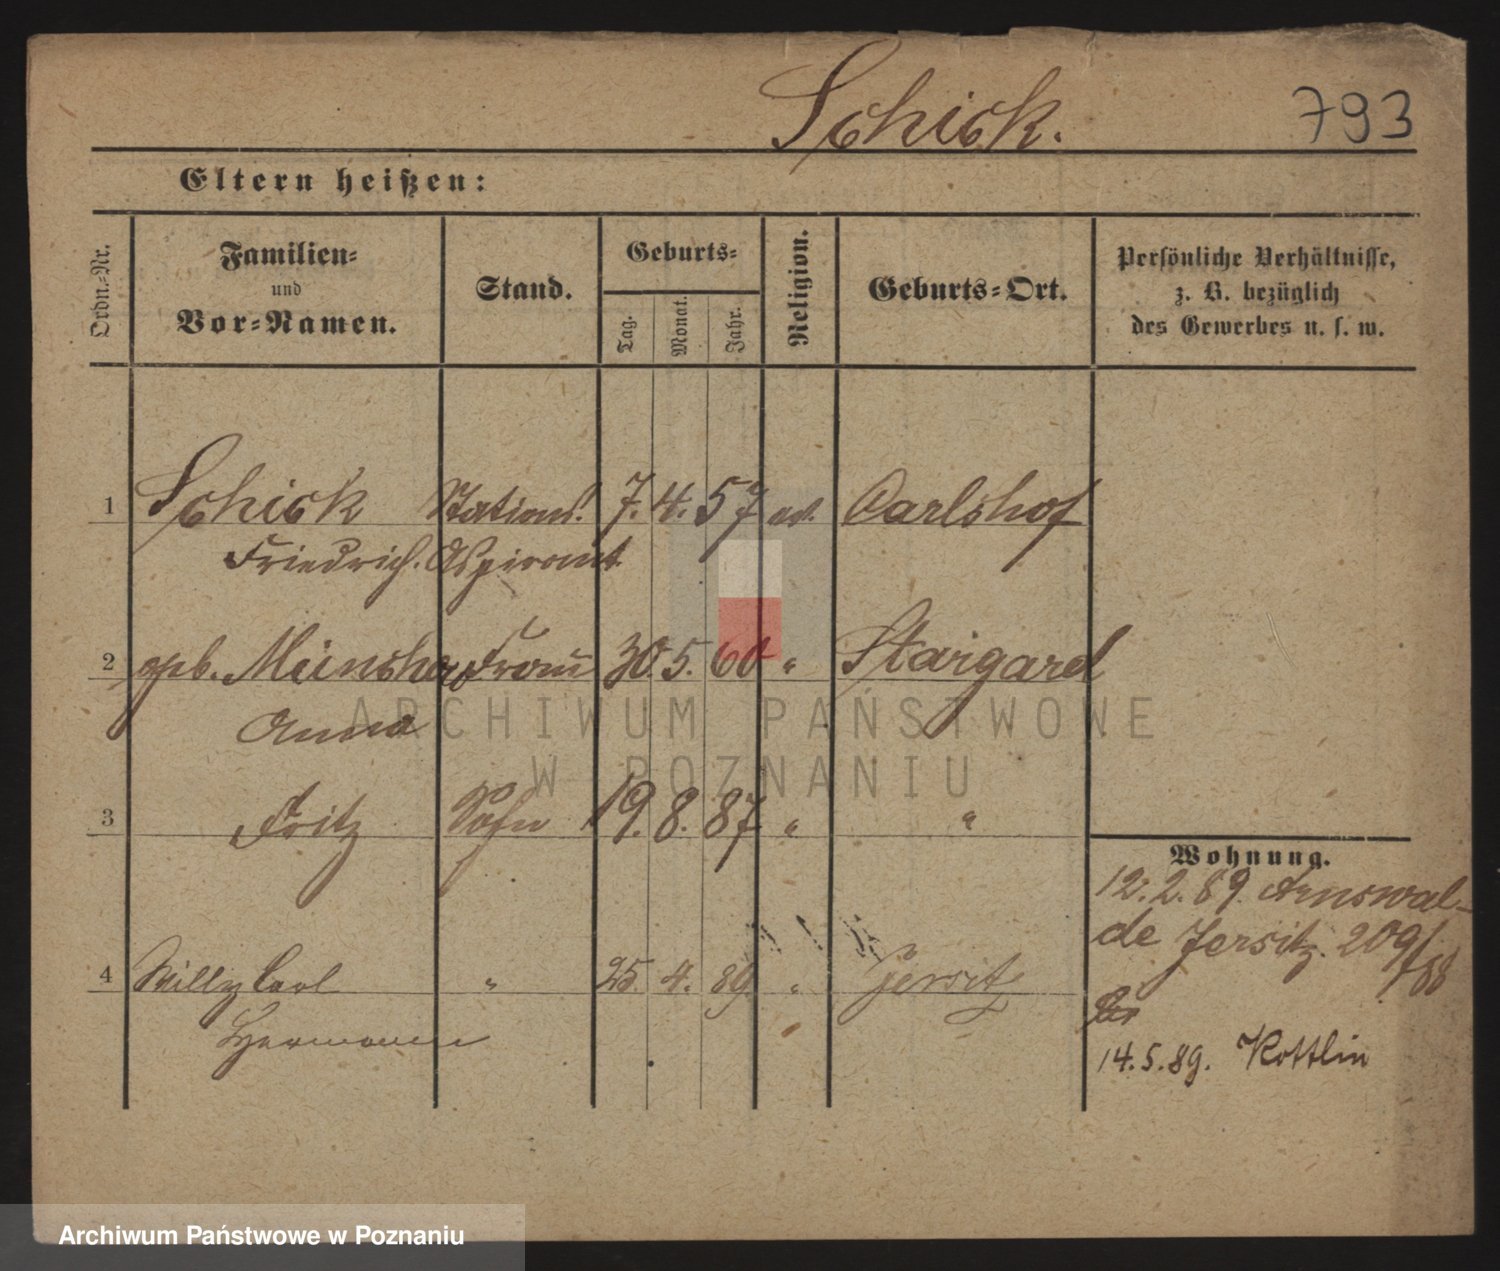 Schick.
793
Eltern heißen:
Ordn.-Nr.
Familien-
und
Vor-Namen.
Stand.
Geburts-
Tag.
Monat.
Jahr.
Religion.
Geburts-Ort.
Persönliche Verhältnisse,
z. B. bezüglich
des Gewerbes u. s. w.
1 Schick Stations. 7. 4. 57 ev. Carlshof
Friedrich. Aspirant
2 geb. Frau 30. 5. 60 " Stargard
Anna
3 Fritz Sohn 19. 8. 87 " "
4 Willy Carl " 25. 4. 89. " Jersitz
Hermann
Wohnung.
12. 2. 89. Arnswal-
de Jersitz. 209/88
14. 5. 89. Kottlin
ARCHIWUM PAŃSTWOWE
W POZNANIU
Archiwum Państwowe w Poznaniu